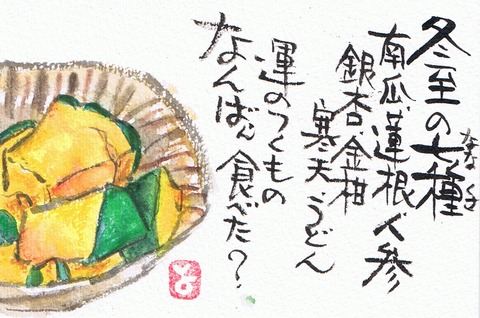 冬至の七種
ななくさ
南瓜、蓮根、人参
銀杏、金柑
寒天、うどん
運のつくもの
なんばん食べた？